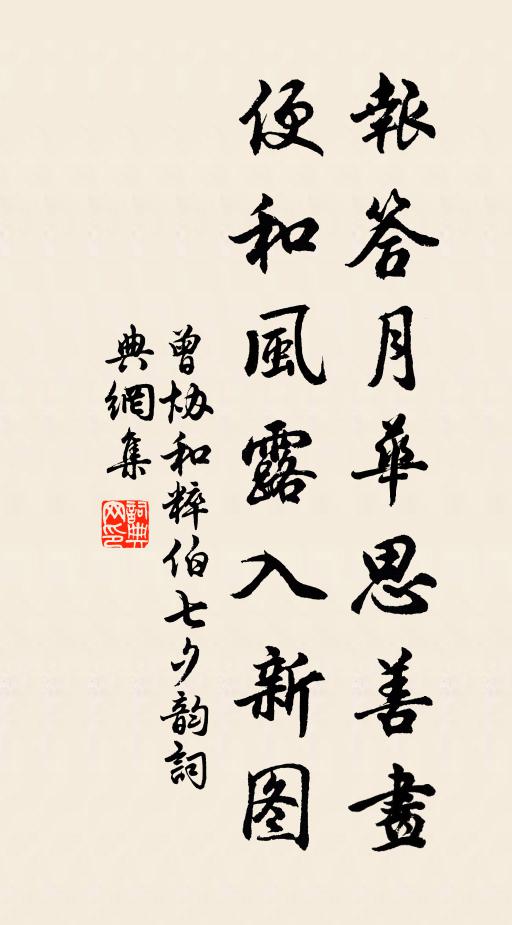 報答月華思善畫
便和風露入新图
曾协和粹伯七夕韵詞
典網集
詞典
网印